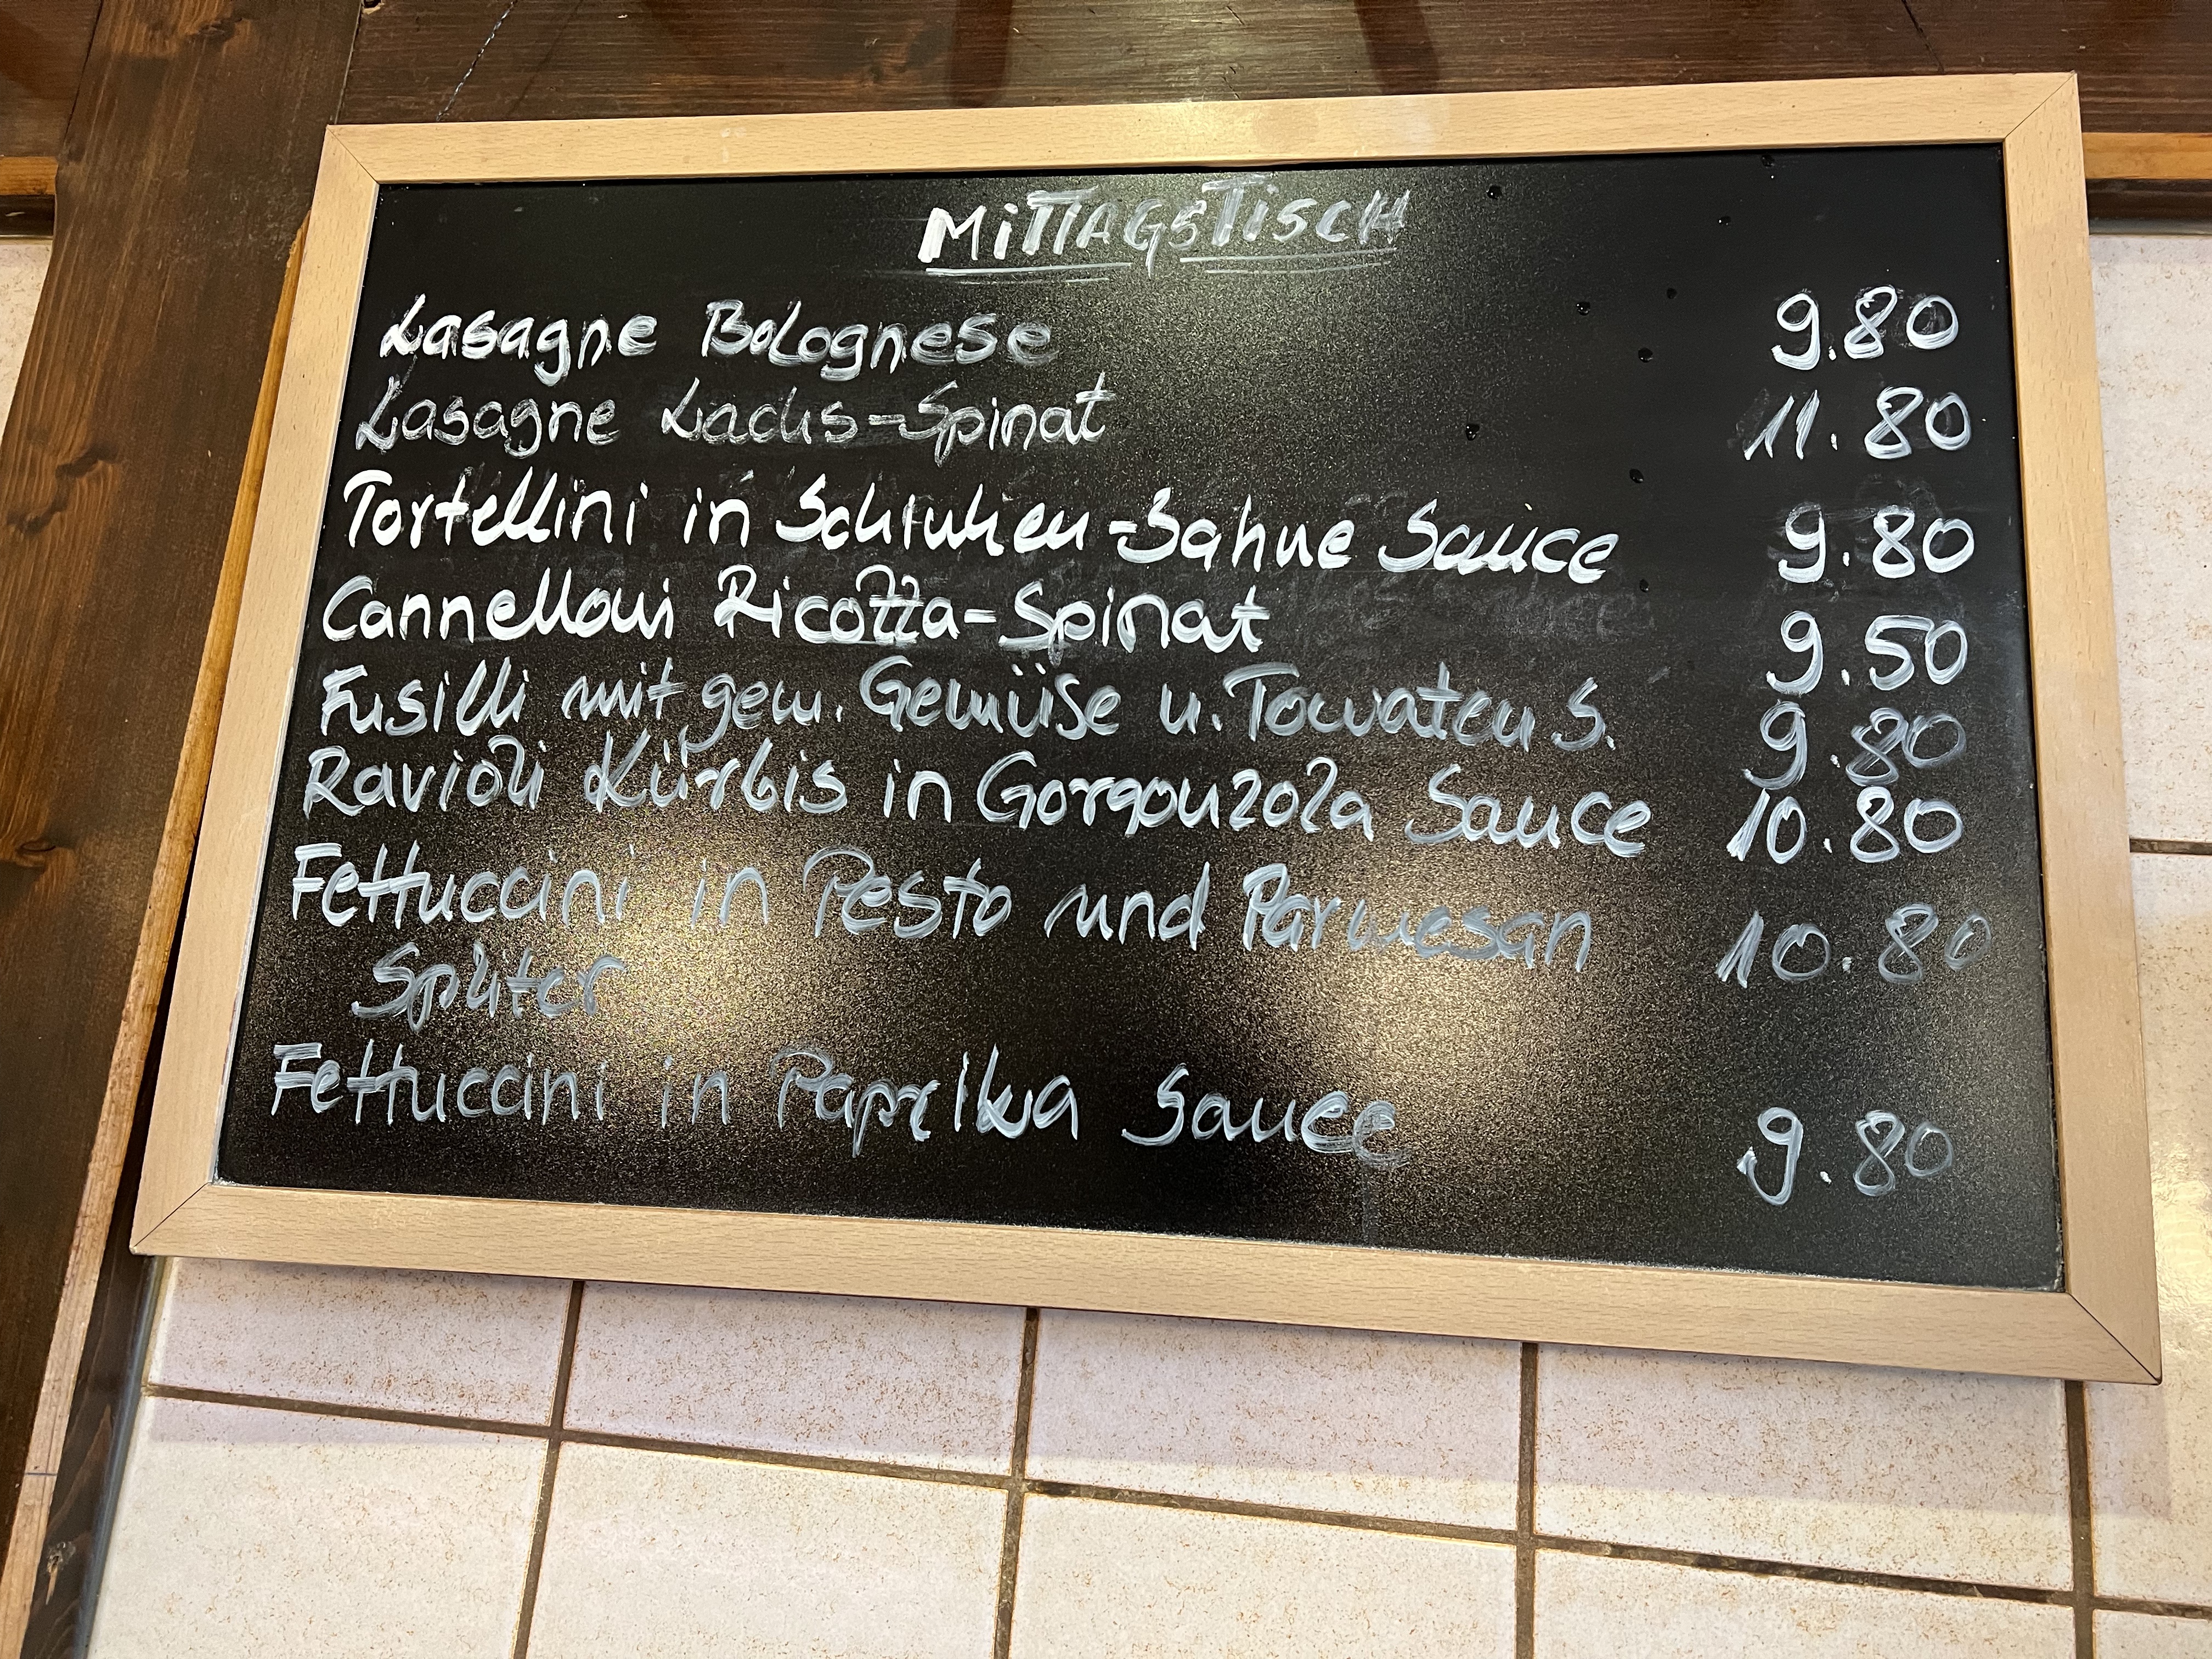 MiTTAGSTiSCH
Lasagne Bolognese 9.80
Lasagne Lachs-Spinat 11.80
Tortellini in Schinken-Sahne Sauce 9.80
Cannelloni Ricotta-Spinat 9.50
Fusilli mit gem. Gemüse u. Tomaten S. 9.80
Ravioli Kürbis in Gorgonzola Sauce 10.80
Fettuccini in Pesto und Parmesan 10.80
Splitter
Fettuccini in Paprika Sauce 9.80